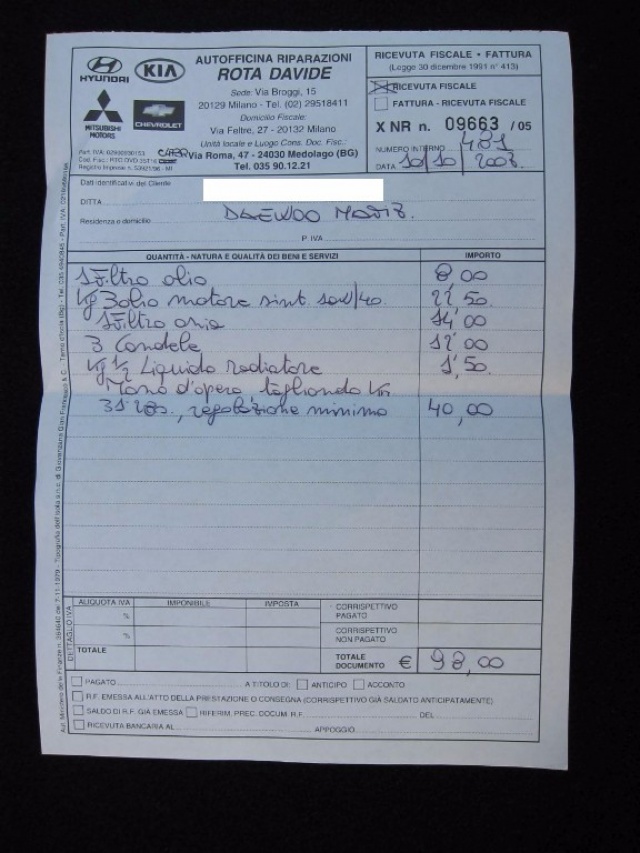 HYUNDAI
KIA
MITSUBISHI
MOTORS
CHEVROLET
AUTOFFICINA RIPARAZIONI
ROTA DAVIDE
Sede: Via Broggi, 15
20129 Milano - Tel. (02) 29518411
Domicilio Fiscale:
Via Feltre, 27 - 20132 Milano
Unità locale e Luogo Cons. Doc. Fisc.:
Via Roma, 47 - 24030 Medolago (BG)
Tel. 035 90.12.21
RICEVUTA FISCALE • FATTURA
(Legge 30 dicembre 1991 n° 413)
RICEVUTA FISCALE
FATTURA - RICEVUTA FISCALE
X NR n. 09663 / 05
NUMERO INTERNO 481
DATA 10/10/2007
Dati identificativi del Cliente
DITTA
DAEWOO MATIZ.
Residenza o domicilio
P. IVA
QUANTITÀ - NATURA E QUALITÀ DEI BENI E SERVIZI IMPORTO
1 Filtro olio 8,00
Kg 3 olio motore sint. 10W/40. 22,50
1 Filtro aria 14,00
3 Candele 12,00
Kg 1/2 Liquido radiatore 1,50
Mano d'opera tagliando Km
regolazione minimo 40,00
DETTAGLIO IVA
ALIQUOTA IVA IMPONIBILE IMPOSTA
%
%
TOTALE
CORRISPETTIVO
PAGATO
CORRISPETTIVO
NON PAGATO
TOTALE
DOCUMENTO € 98,00
PAGATO A TITOLO DI: ANTICIPO ACCONTO
R.F. EMESSA ALL'ATTO DELLA PRESTAZIONE O CONSEGNA (CORRISPETTIVO GIÀ SALDATO ANTICIPATAMENTE)
SALDO DI R.F. GIÀ EMESSA RIFERIM. PREC. DOCUM. R.F. DEL
RICEVUTA BANCARIA AL APPOGGIO